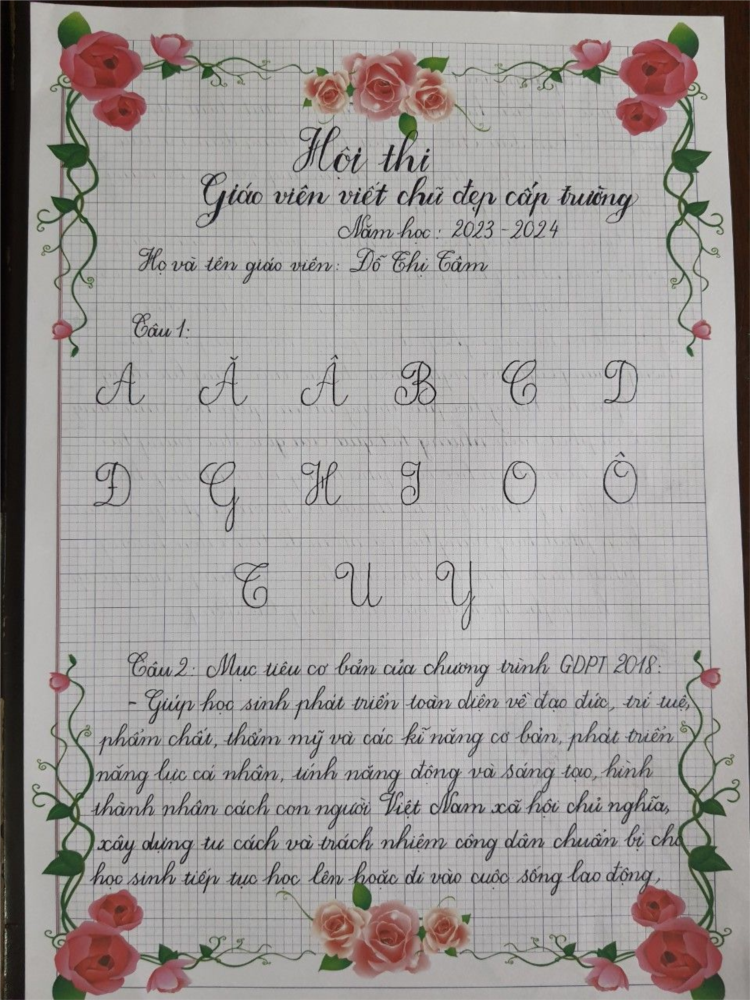 Hội thi
Giáo viên viết chữ đẹp cấp trường
Năm học: 2023 - 2024
Họ và tên giáo viên: Đỗ Thị Tâm
Câu 1:
A Ă Â B C D
Đ G H I O Ô
T U Y
Câu 2: Mục tiêu cơ bản của chương trình GDPT 2018:
- Giúp học sinh phát triển toàn diện về đạo đức, trí tuệ,
phẩm chất, thẩm mỹ và các kĩ năng cơ bản, phát triển
năng lực cá nhân, tính năng động và sáng tạo, hình
thành nhân cách con người Việt Nam xã hội chủ nghĩa,
xây dựng tư cách và trách nhiệm công dân chuẩn bị cho
học sinh tiếp tục học lên hoặc đi vào cuộc sống lao động,